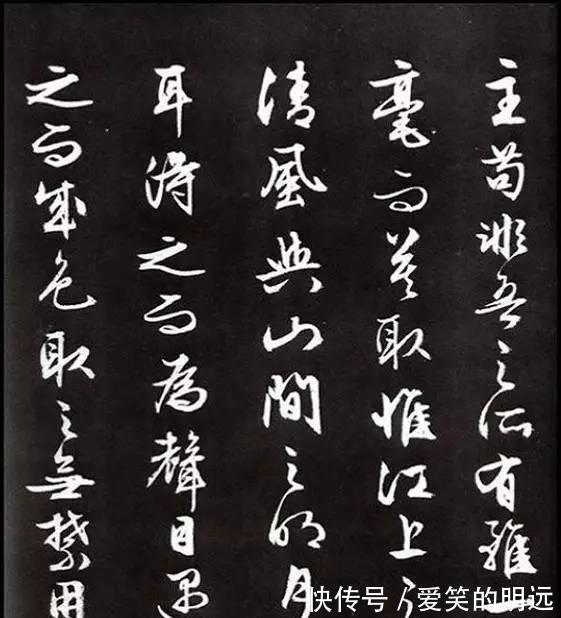 主苟非吾之所有雖一
毫而莫取惟江上之
清風與山間之明月
耳得之而為聲目遇
之而成色取之無禁用
快传号/爱笑的明远